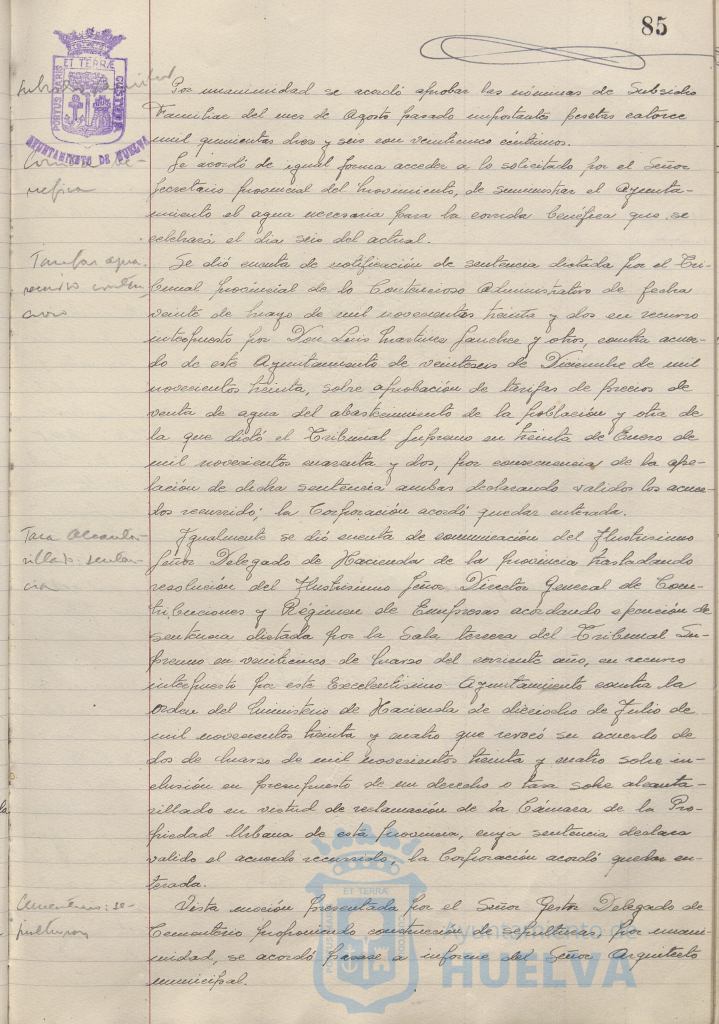 85
ET TERRÆ
PORTUS MARIS
CUSTODIA
AYUNTAMIENTO DE HUELVA
Subsidio
Por unanimidad se acordó aprobar las nóminas de Subsidio
Familiar del mes de Agosto pasado importantes pesetas catorce
mil quinientas dies y seis con veinticinco céntimos.
Corrida be-
néfica
Se acordó de igual forma acceder a lo solicitado por el Señor
Secretario Provincial del Movimiento, de suministrar el Ayunta-
miento el agua necesaria para la corrida benéfica que se
celebrará el dia seis del actual.
Tarifas agua.
recurso conten
cioso
Se dió cuenta de notificación de sentencia dictada por el Tri-
bunal Provincial de lo Contencioso Administrativo de fecha
veinte de Mayo de mil novecientos treinta y dos en recurso
interpuesto por Don Luis Martinez Sanchez y otros, contra acuer-
do de este Ayuntamiento de veintiseis de Diciembre de mil
novecientos treinta, sobre aprobación de tarifas de precios de
venta de agua del abastecimiento de la población y otra de
la que dictó el Tribunal Supremo en treinta de Enero de
mil novecientos cuarenta y dos, por consecuencia de la ape-
lación de dicha sentencia ambas declarando validos los acuer-
dos recurridos; la Corporación acordó quedar enterada.
Tasa Alcanta-
rillado: senten-
cia
Igualmente se dió cuenta de comunicación del Ilustrisimo
Señor Delegado de Hacienda de la provincia trasladando
resolución del Ilustrisimo Señor Director General de Con-
tribuciones y Régimen de Empresas acordando ejecución de
sentencia dictada por la Sala tercera del Tribunal Su-
premo en veinticinco de Marzo del corriente año, en recurso
interpuesto por este Excelentisimo Ayuntamiento contra la
Orden del Ministerio de Hacienda de dieciocho de Julio de
mil novecientos treinta y cuatro que revocó su acuerdo de
dos de Marzo de mil novecientos treinta y cuatro sobre in-
clusión en presupuesto de un derecho o tasa sobre alcanta-
rillado en virtud de reclamación de la Cámara de la Pro-
piedad Urbana de esta Provincia, cuya sentencia declara
valido el acuerdo recurrido, la Corporación acordó quedar en-
terada.
Cementerio: se-
pulturas
Vista moción presentada por el Señor Gestor Delegado de
Cementerio proponiendo construcción de sepulturas, por unani-
midad, se acordó pasase a informe del Señor Arquitecto
municipal.
Ayuntamiento de
HUELVA